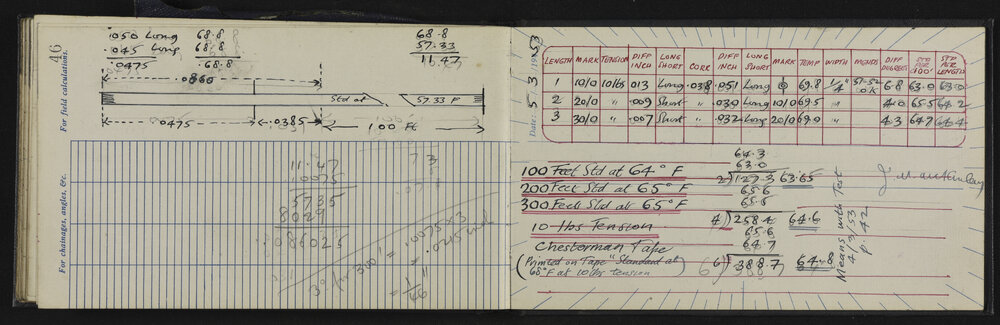 46
For field calculations.
.1050 Long 68.8 68.8
.045 Long 68.8 57.33
.0475 68.8 11.47
.0860
Std at 57.33 F
.0475 .0385
100 Ft
For chainages, angles, &c.
11.47
10075
5735
8029
.086025
73
.0075 x 3
.0215
3° for 300' =
= 1/46"
Date: 5 3 1953
LENGTH MARK TENSION DIFF INCH LONG SHORT CORR DIFF INCH LONG SHORT MARK TEMP WIDTH MGNDS DIFF DEGREES STD PER 100' STD PER LENGTH
1 10/0 10lbs .013 Long .038 .051 Long 69.8 1/4" 51-52 O.K 6.8 63.0 63.0
2 20/0 " .009 Short " .030 Long 10/0 69.5 " 4.0 65.5 64.2
3 30/0 " .007 Short " .032 Long 20/0 69.0 " 4.3 64.7 64.4
100 Feet Std at 64° F
200 Feet Std at 65° F
300 Feet Std at 65° F
10 lbs Tension
Chesterman Tape
(Printed on Tape "Standard at
65° F at 10 lbs tension
64.3
63.0
2)127.3 63.65
65.6
65.5
4)258.4 64.6
65.6
64.7
6)388.7 64.8
Means with Test
4/2/53
p. 42